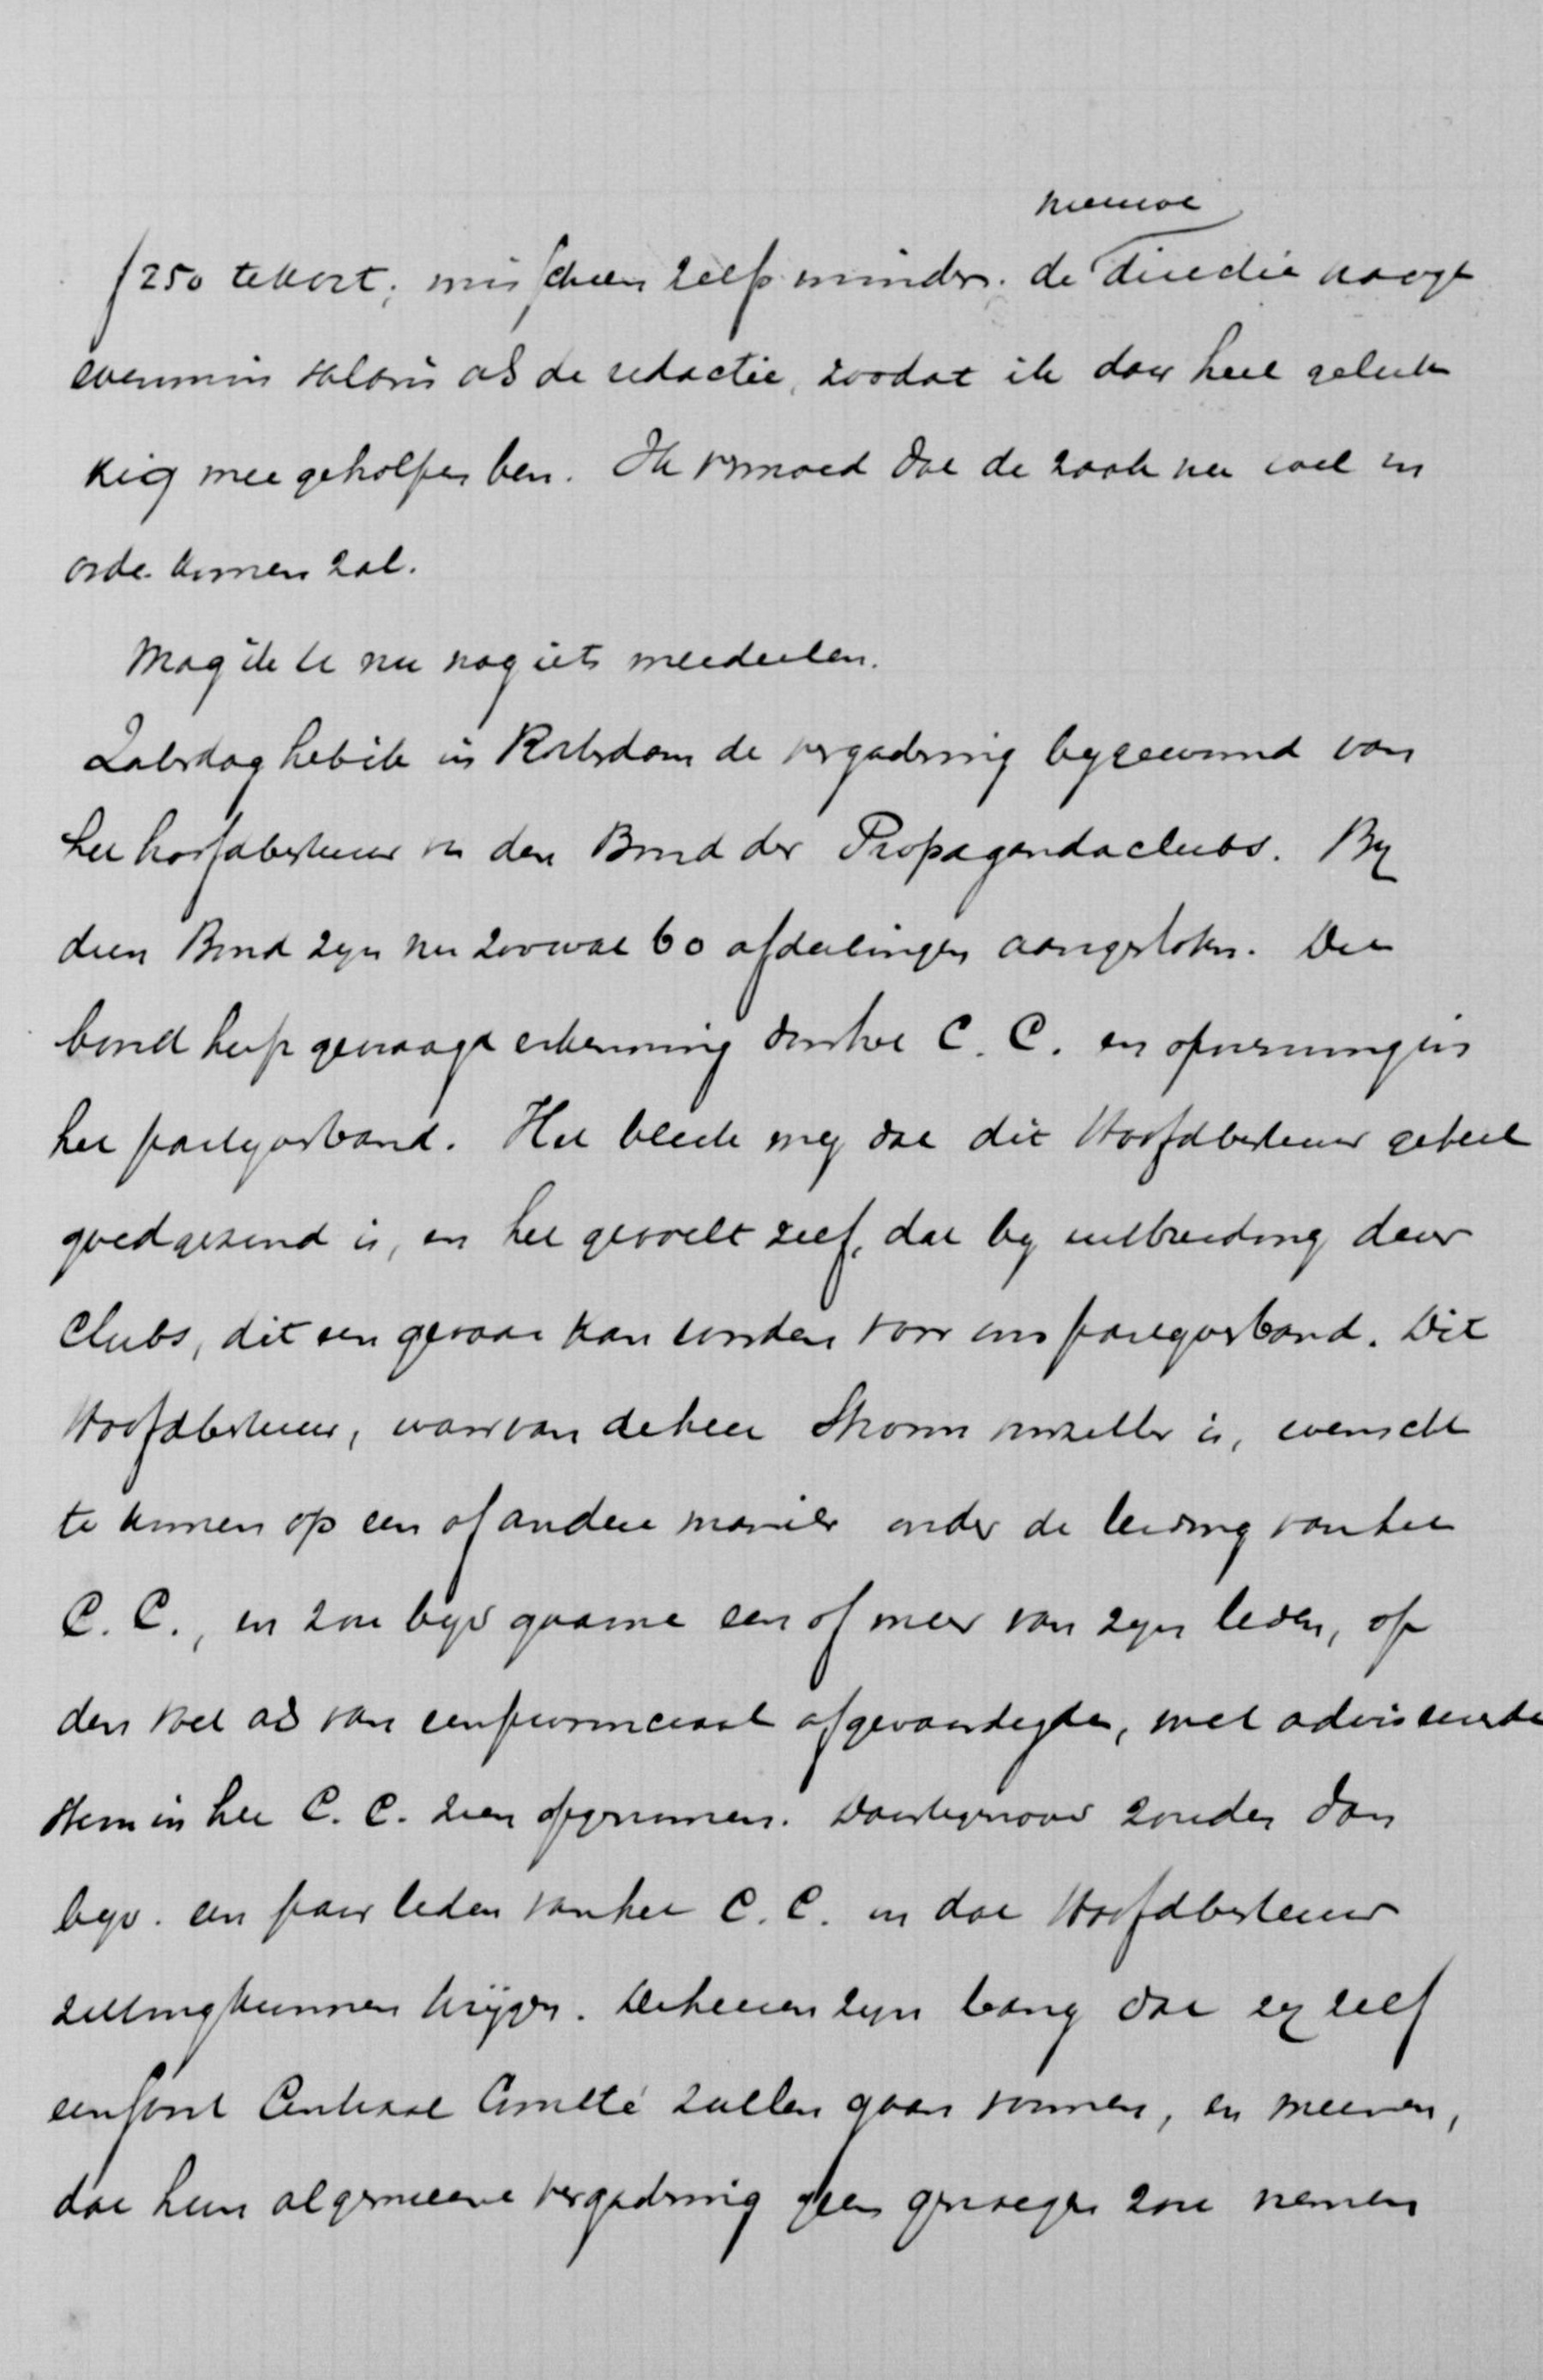 nieuwe
f 250 tekort; misschien zelfs minder. de directie vraagt
evenmin salaris als de redactie, zoodat ik daar heel geluk
kig mee geholpen ben. Ik vermoed dat de zaak nu wel in
orde komen zal.
Mag ik U nu nog iets meedeelen.
Zaterdag heb ik in Rotterdam de vergadering bygewoond van
het hoofdbestuur van den Bond der Propagandaclubs. By
dien Bond zyn nu zoowat 60 afdeelingen aangesloten. De
bond heeft gevraagd erkenning door het C. C. en opneming in
het partyverband. Het bleek my dat dit Hoofdbestuur geheel
goedgezind is, en het gevoelt zelf, dat by uitbreiding dezer
Clubs, dit een gevaar kan worden voor ons partyverband. Dit
Hoofdbestuur, waarvan de heer Thorn voorzitter is, wenscht
te komen op een of andere manier onder de leiding van het
C. C., en zou bijv gaarne een of meer van zyn leden, op
den voet als van een provinciaal afgevaardigde, met adviseerende
stem in het C. C. zien opgenomen. Daartegenover zouden dan
bijv. een paar leden van het C. C. in dat Hoofdbestuur
zitting kunnen krijgen. De heeren zyn bang dat zy zelf
een soort Centraal Comité zullen gaan vormen, en meenen,
dat hun algemeene vergadering geen genoegen zou nemen